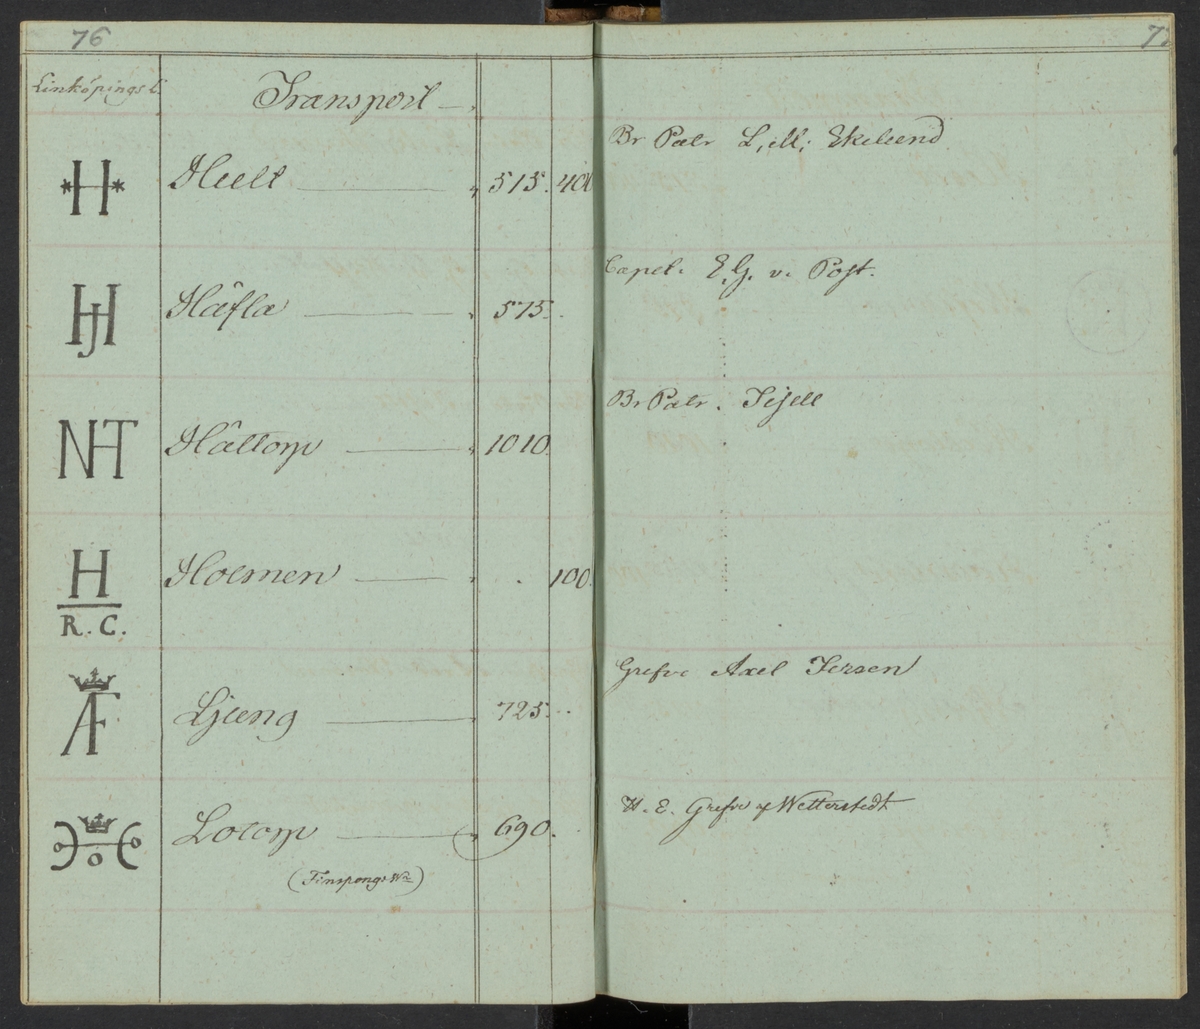 76
Linköpings L.
Transport
H Hult 515. 400 Br Patr L. Ekelund
HJ Häfla 575. Capet. E.G. v. Post.
NHT Hättorp 1010 Br Patr.
H Holmen 100.
R. C.
AF Ljung 725. Grefve Axel Fersen
Lotorp 690. H. E. Grefve af Wetterstedt
(Finspongs Wn)